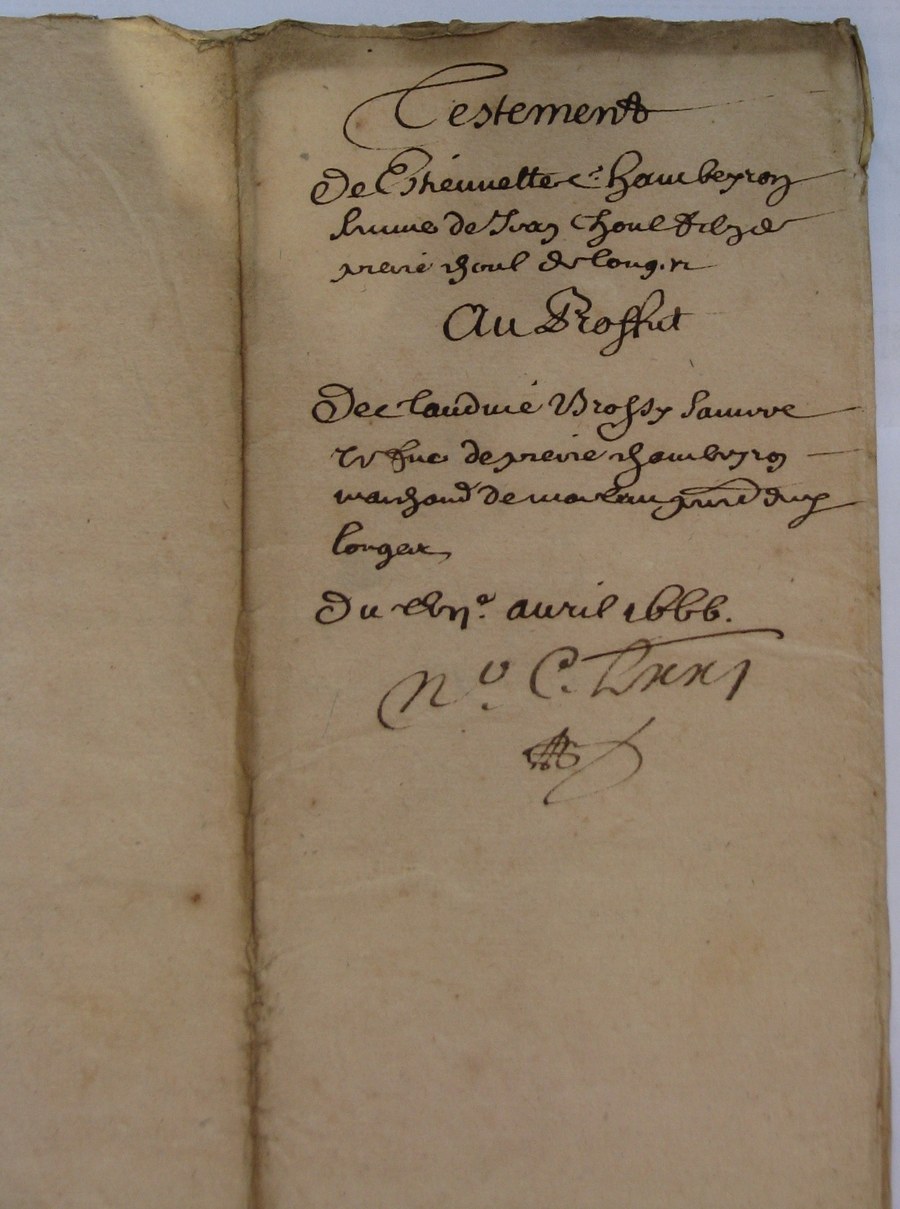 Testement
De Estiennette Chambeyron
femme de Jean Choul fils de
pierre choul de longes
Au Proffict
De Claudine Brossy sa mere
vefve de pierre chambeyron
marchand de
longes
Du avril 1666.